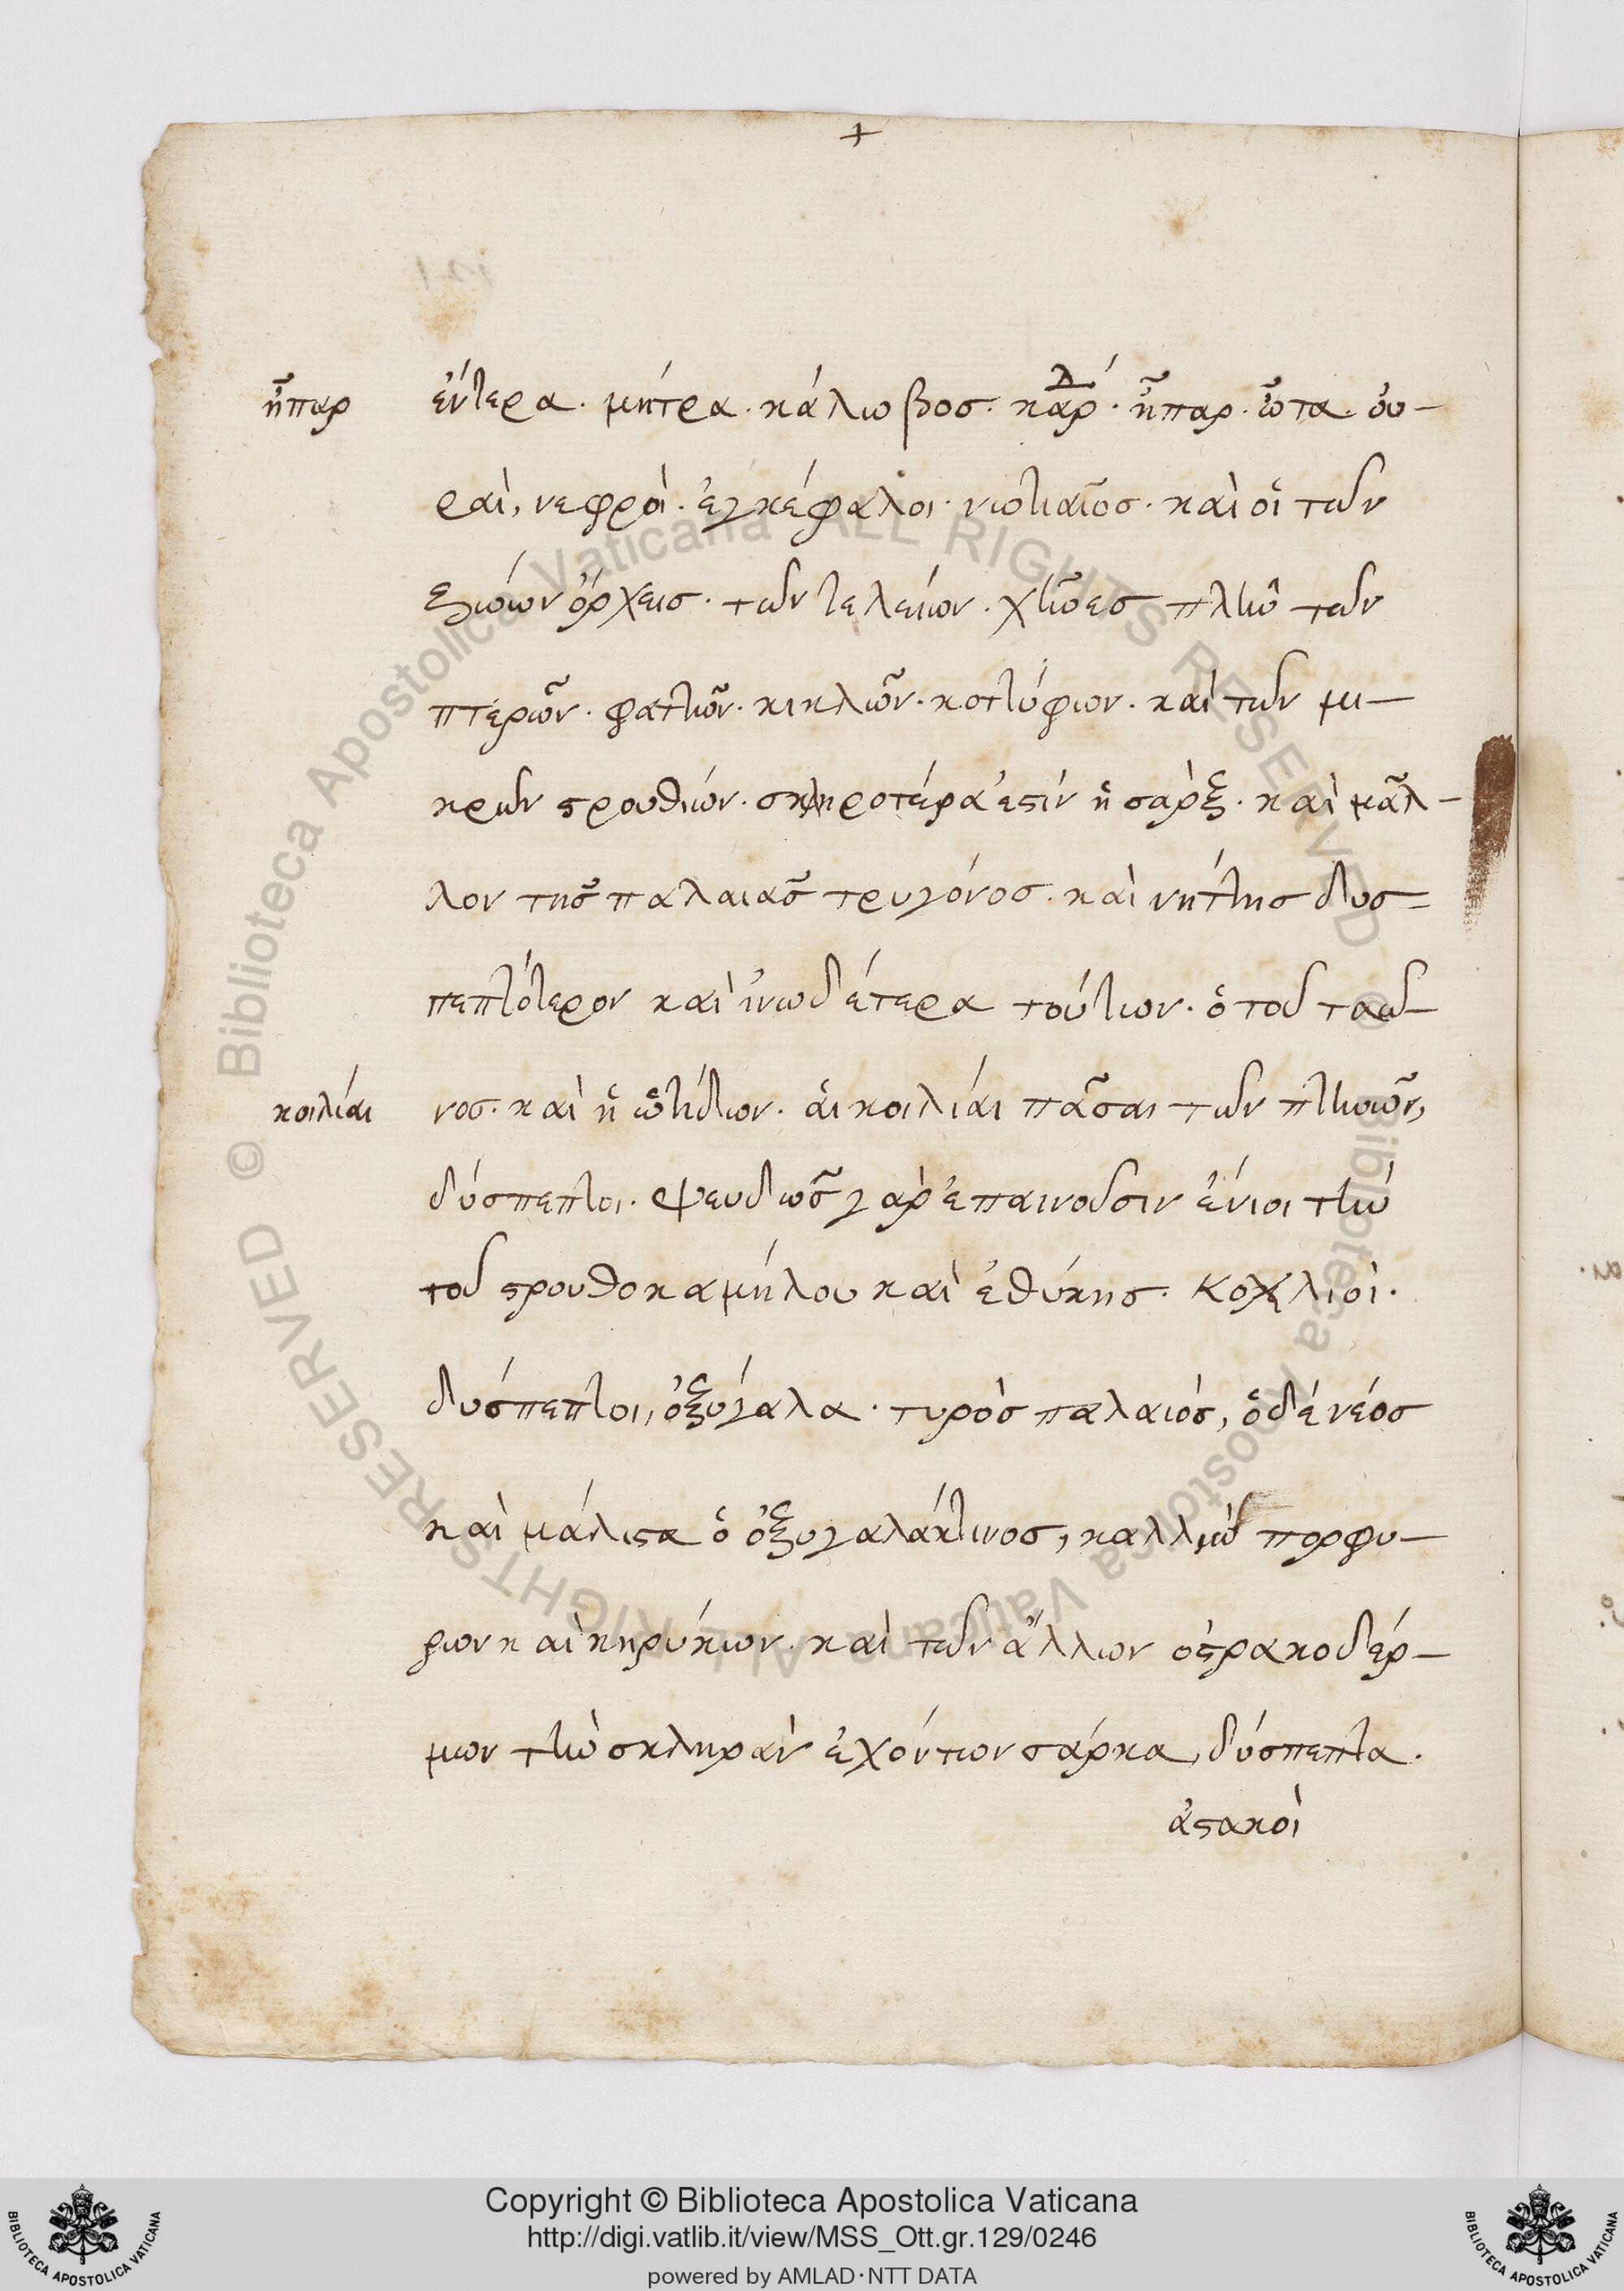 +
ἧπαρ
ἔντερα. μήτρα. κάλωβος. καρδ. ἧπαρ. ὦτα. οὐ-
ραὶ, νεφροὶ. ἐγκέφαλοι. νωτιαῖος. καὶ οἱ τῶν
ζώων ὄρχεις. τῶν τελείων. χῆνες πλὴν τῶν
πτερῶν. φατῶν. κικλῶν. κοττύφων. καὶ τῶν μι-
κρῶν στρουθίων. σκληροτέρα ἐστὶν ἡ σάρξ. καὶ μᾶλ-
λον τῆς παλαιᾶς τρυγόνος. καὶ νήττης δυσ=
πεπτότερον καὶ ἰνωδέτερα τούτων. ὁ τοῦ ταῶ-
κοιλίαι
νος. καὶ ἡ ὠτίδων. αἱ κοιλίαι πᾶσαι τῶν πτηνῶν,
δύσπεπτοι. ψευδῶς γὰρ ἐπαινοῦσιν ἔνιοι τὴν
τοῦ στρουθοκαμήλου καὶ ἐθύκης. κοχλιοὶ.
δύσπεπτοι, ὀξύγαλα. τυρὸς παλαιός, ὁ δὲ νέος
καὶ μάλιστα ὁ ὀξυγαλάκτινος, καλλιὼ πορφυ-
ρων καὶ κηρύκων. καὶ τῶν ἄλλων ὀστρακοδέρ-
μων τὴν σκληρὰν ἐχόντων σάρκα, δύσπεπτα.
ἀστακοὶ
Copyright © Biblioteca Apostolica Vaticana
http://digi.vatlib.it/view/MSS_Ott.gr.129/0246
powered by AMLAD·NTT DATA